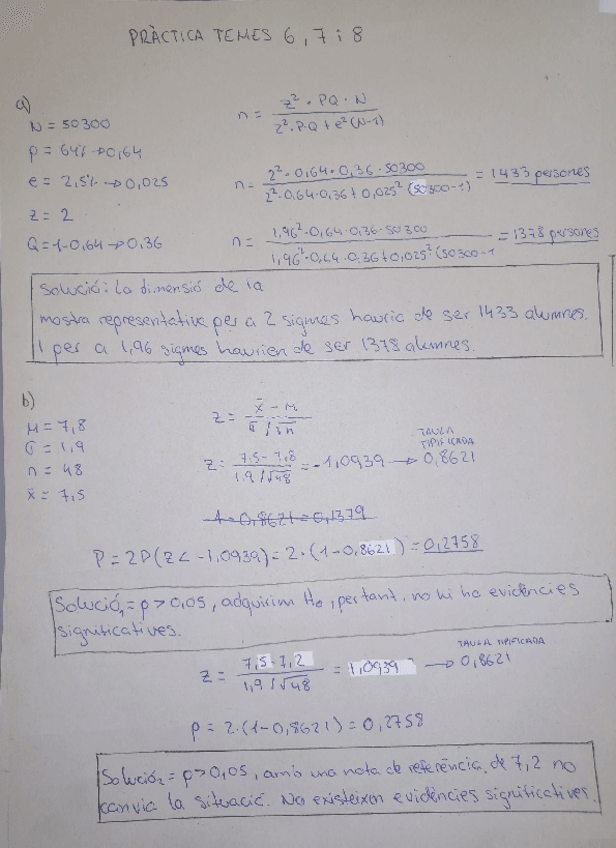 PRÀCTICA TEMES 6, 7 i 8
a)
N = 50300
n = z² · PQ · N / z² · P·Q + e² (N-1)
p = 64% → 0,64
e = 2,5% → 0,025
n = 2² · 0,64 · 0,36 · 50300 / 2² · 0,64 · 0,36 + 0,025² (50300-1) = 1433 persones
z = 2
Q = 1-0,64 → 0,36
n = 1,96² · 0,64 · 0,36 · 50300 / 1,96² · 0,64 · 0,36 + 0,025² (50300-1 = 1378 persones
Solució: La dimensió de la
mostra representativa per a 2 sigmes hauria de ser 1433 alumnes.
I per a 1,96 sigmes haurien de ser 1378 alumnes.
b)
M = 7,8
z = x̄ - M / σ / √n
σ = 1,9
n = 48
z = 7,5 - 7,8 / 1,9 / √48 = -1,0939 → TAULA TIPIFICADA 0,8621
x̄ = 7,5
1-0,8621 = 0,1379
P = 2P(Z < -1,0939) = 2 · (1-0,8621) = 0,2758
Solució₁ = p > 0,05, adquirim H₀, per tant, no hi ha evidències
significatives.
z = 7,5-7,2 / 1,9 / √48 = 1,0939 → TAULA TIPIFICADA 0,8621
p = 2·(1-0,8621) = 0,2758
Solució₂ = p > 0,05, amb una nota de referència, de 7,2 no
canvia la situació. No existeixen evidències significatives.